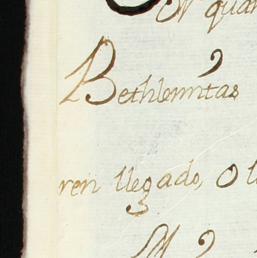 Or quan
Bethlemitas
ren llegado, o l